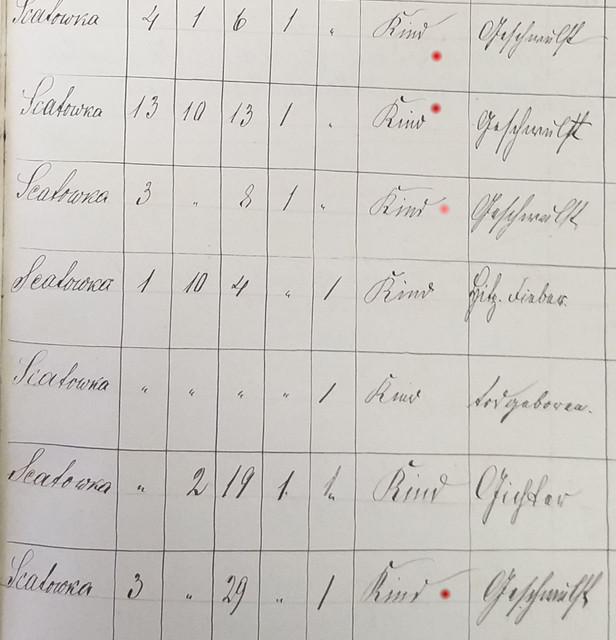 Scatowka 4 1 6 1 " Kind Geschwulst
Scatowka 13 10 13 1 " Kind Geschwulst
Scatowka 3 " 8 1 " Kind Geschwulst
Scatowka 1 10 4 " 1 Kind Hitz. Fieber.
Scatowka " " " " 1 Kind todgeboren.
Scatowka " 2 19 1 Kind Gichter
Scatowka 3 " 29 " 1 Kind Geschwulst